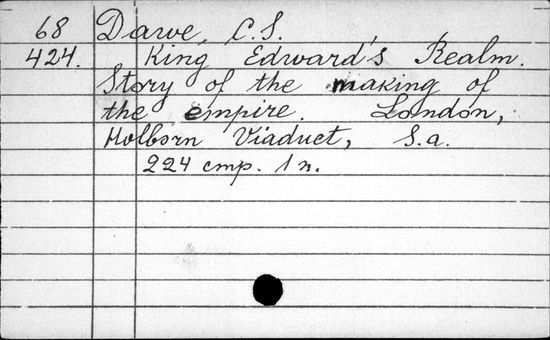 68 Dawe, C.S.
424. King Edward's Realm.
Story of the making of
the empire. London,
Holborn Viaduct, S.a.
224 стр. 1 л.